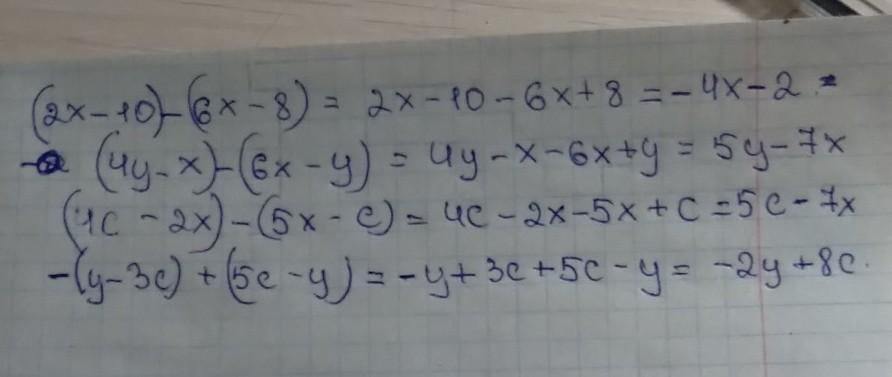 (2x-10)-(6x-8) = 2x-10-6x+8 = -4x-2
(4y-x)-(6x-y) = 4y-x-6x+y = 5y-7x
(4c-2x)-(5x-c) = 4c-2x-5x+c = 5c-7x
-(y-3c)+(5c-y) = -y+3c+5c-y = -2y+8c.